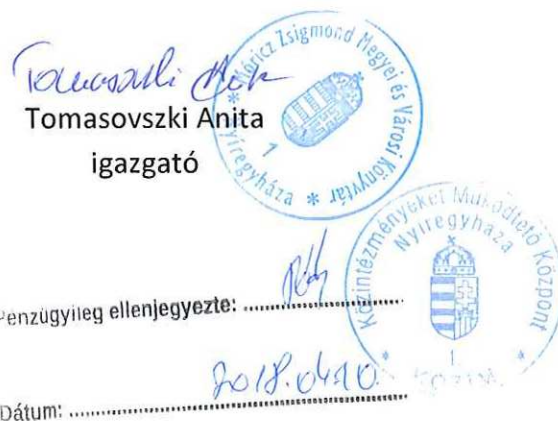 Tomasovszki Anita
Tomasovszki Anita
igazgató
* Móricz Zsigmond Megyei és Városi Könyvtár * Nyíregyháza
1
Közintézményeket Működtető Központ
Nyíregyháza
* 1 *
KÖZIM
Pénzügyileg ellenjegyezte: ..........
Dátum: 2018.04.10.